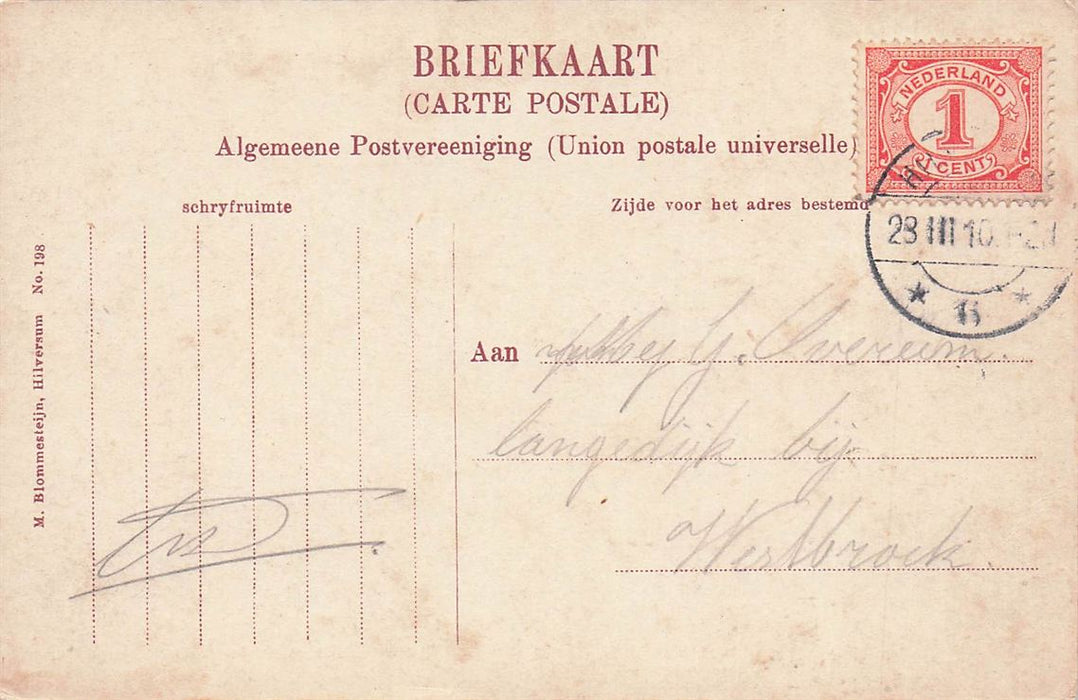 BRIEFKAART
(CARTE POSTALE)
Algemeene Postvereeniging (Union postale universelle)
NEDERLAND
1
CENT
schryfruimte
Zijde voor het adres bestemd
28 III 10
M. Blommesteijn, Hilversum No. 198
Aan G. Overeem.
langedijk bij
Westbroek.